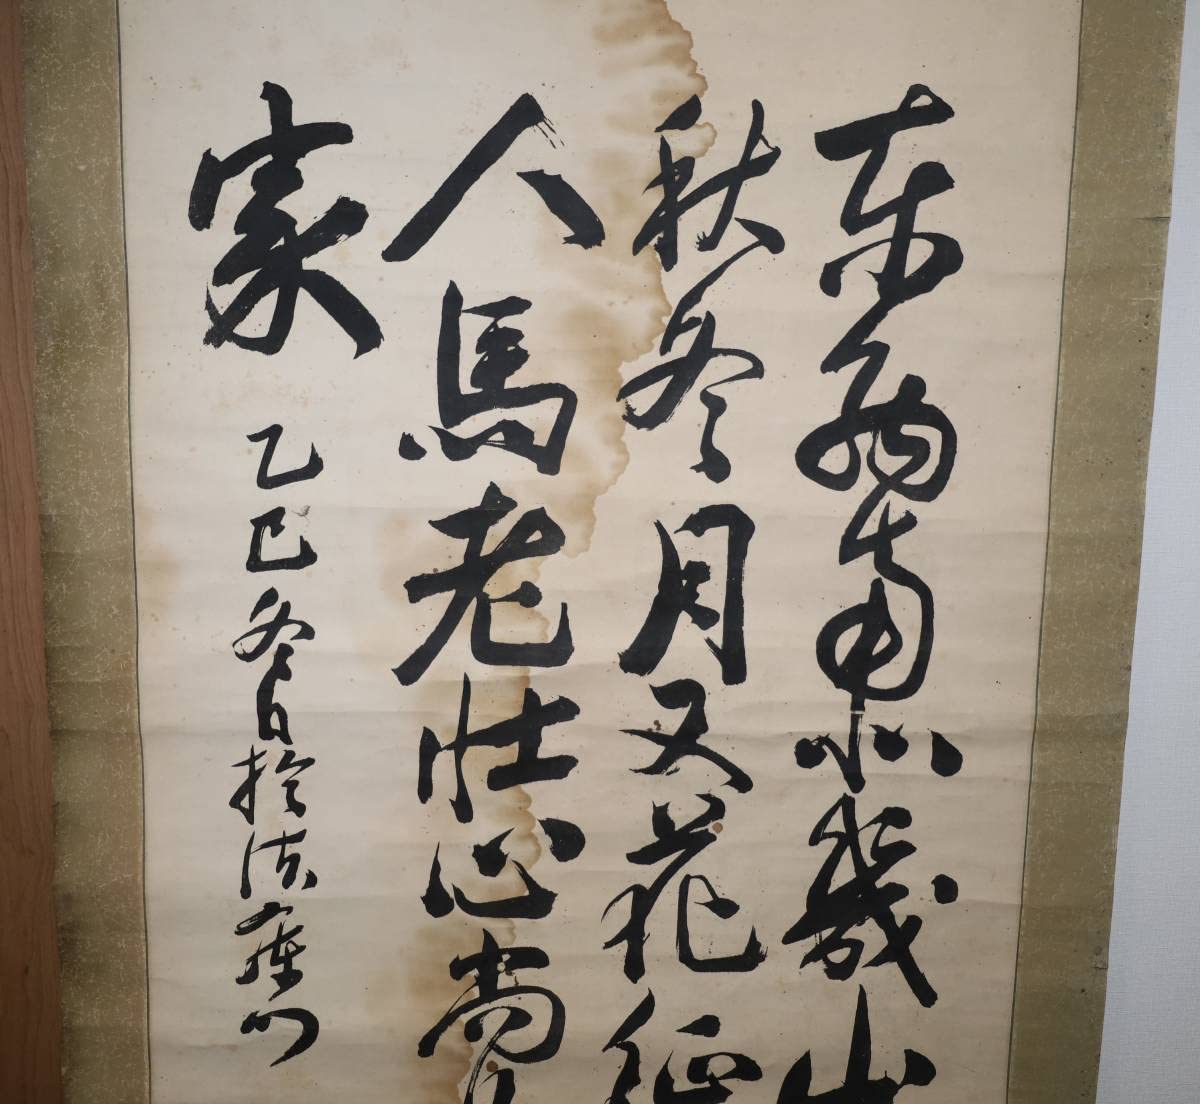 東西南北幾山
秋冬月又花征
人馬老壮心尚
家
乙巳冬日於法庫門